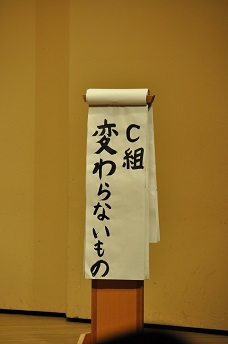 C組
変わらないもの